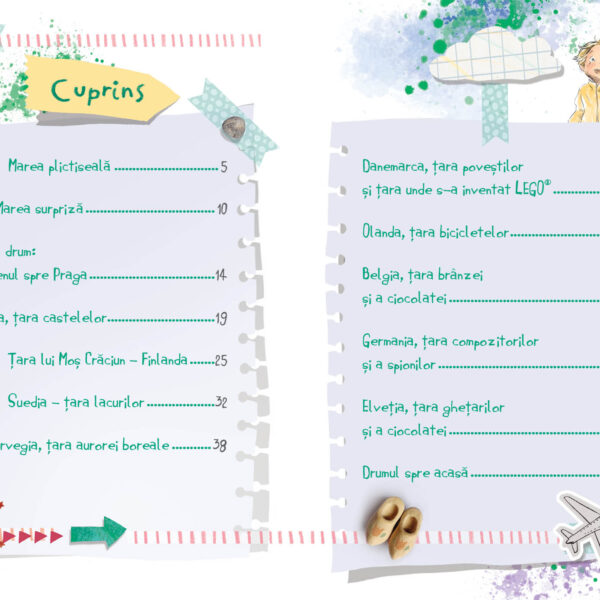 Cuprins
Marea plictiseală 5
Marea surpriză 10
drum:
spre Praga 14
țara castelelor 19
Țara lui Moș Crăciun – Finlanda 25
Suedia – țara lacurilor 32
țara aurorei boreale 38
Danemarca, țara poveștilor
și țara unde s-a inventat LEGO®
Olanda, țara bicicletelor
Belgia, țara brânzei
și a ciocolatei
Germania, țara compozitorilor
și a spionilor
Elveția, țara ghețarilor
și a ciocolatei
Drumul spre acasă